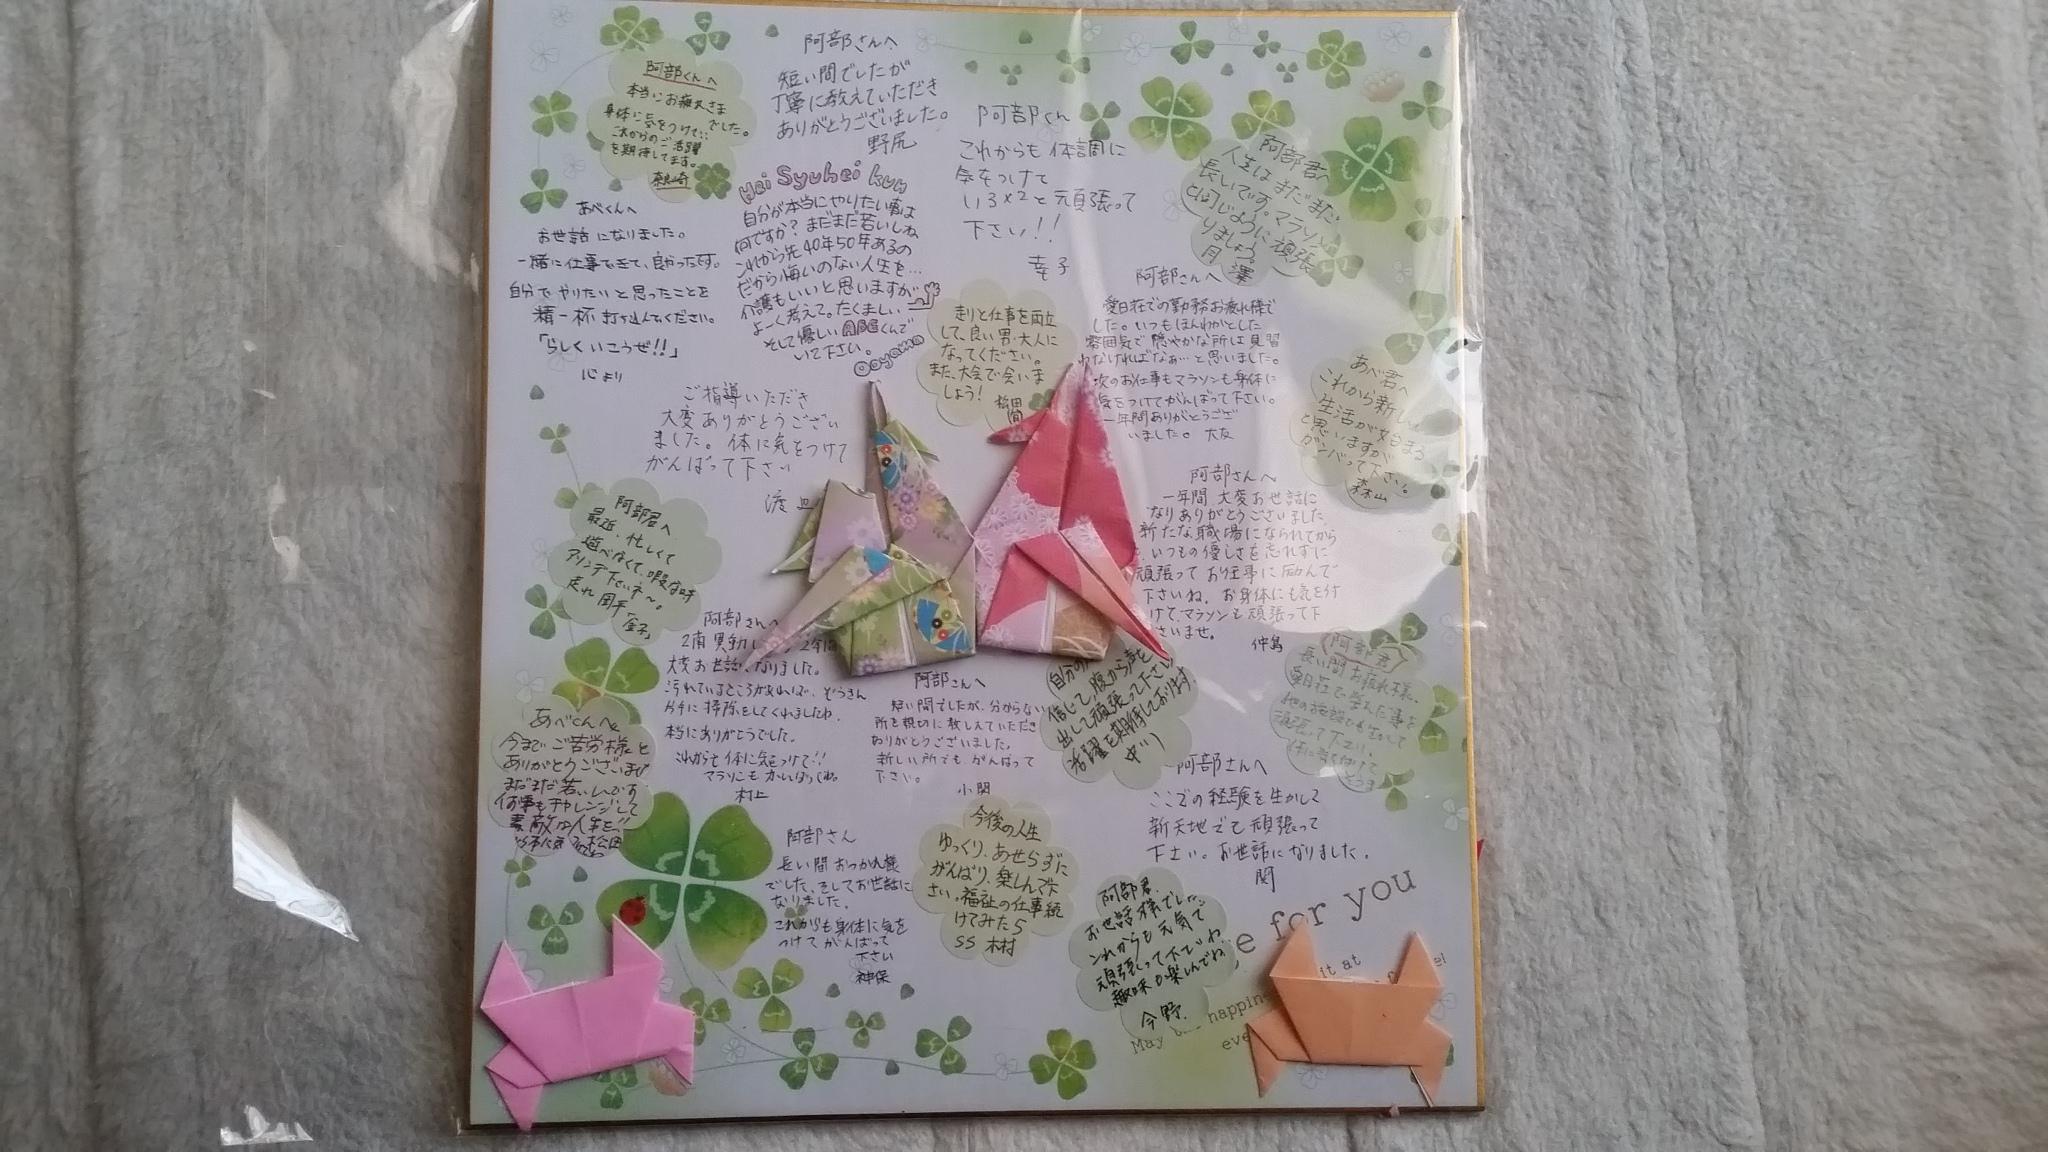 阿部くんへ
本当にお疲れさま
でした。
身体に気をつけて…
これからのご活躍
を期待してます。
阿部さんへ
短い間でしたが
丁寧に教えていただき
ありがとうございました。
野尻
阿部くん
これからも体調に
気をつけて
いろ×2と頑張って
下さい!!
幸子
阿部君へ
人生はまだまだ
長いです。マラソン
と同じように頑張
りましょう。
月澤
あべくんへ
お世話になりました。
一緒に仕事できて、良かったです。
自分でやりたいと思ったことを
精一杯打ち込んでください。
「らしくいこうぜ!!」
心より
Hei Syuhei kun
自分が本当にやりたい事は
何ですか?まだまだ若いしね
これから先40年50年あるの
だから悔いのない人生を…
介護もいいと思いますが
よーく考えて。たくましい
そして優しいABEくんで
いて下さい。
Ooyama
走りと仕事を両立
して、良い男・大人に
なってください。
また、大会で会いま
しょう!
阿部さんへ
愛日荘での勤務お疲れ様で
した。いつもほんわかとした
雰囲気で穏やかな所は見習
わなければなぁ…と思いました。
次のお仕事もマラソンも身体に
気をつけてがんばって下さい。
一年間ありがとうござ
いました。大友
あべ君へ
これから新しい
生活が始まる
と思いますが
ガンバって下さい。
森山
ご指導いただき
大変ありがとうござい
ました。体に気をつけて
がんばって下さい
渡辺
阿部さんへ
一年間大変お世話に
なりありがとうございました
新たな職場になられてから
も、いつもの優しさを忘れずに
頑張ってお仕事に励んで
下さいね。お身体にも気を付
けて、マラソンも頑張って下
さいませ。
仲島
阿部君へ
最近、忙しくて
遊べなくて、暇な時
走れ
「金子」
阿部さんへ
2南異動し
2年間
大変お世話になりました。
汚れているところがあれば、ぞうきん
片手に掃除をしてくれましたね。
本当にありがとうでした。
これからも体に気をつけて!!
マラソンもがんばってね。
村上
阿部さんへ
短い間でしたが、分からない
所を親切に教えていただき
ありがとうございました。
新しい所でもがんばって
下さい。
小関
自分の
信じて、腹から声を
出して頑張って下さい
活躍を期待しております。
中川
阿部君
長い間お疲れ様。
愛日荘で学んだ事を
他の施設でも生かして
頑張って下さい。
体に気を付けて
あべくんへ
今までご苦労様と
ありがとうございます
まだまだ若いんです
何事もチャレンジして
素敵な人生を!!
松田
阿部さん
長い間おつかれ様
でした、そしてお世話に
なりました。
これからも身体に気を
つけてがんばって
下さい
神保
今後の人生
ゆっくり、あせらずに
がんばり、楽しんで下
さい。福祉の仕事続
けてみたら
SS 木村
阿部さんへ
ここでの経験を生かして
新天地でも頑張って
下さい。お世話になりました。
関
阿部君、
お世話様でした。
これからも元気で
頑張って下さいね。
趣味も楽しんでね。
今野
e for you
it at
May
happine
eve